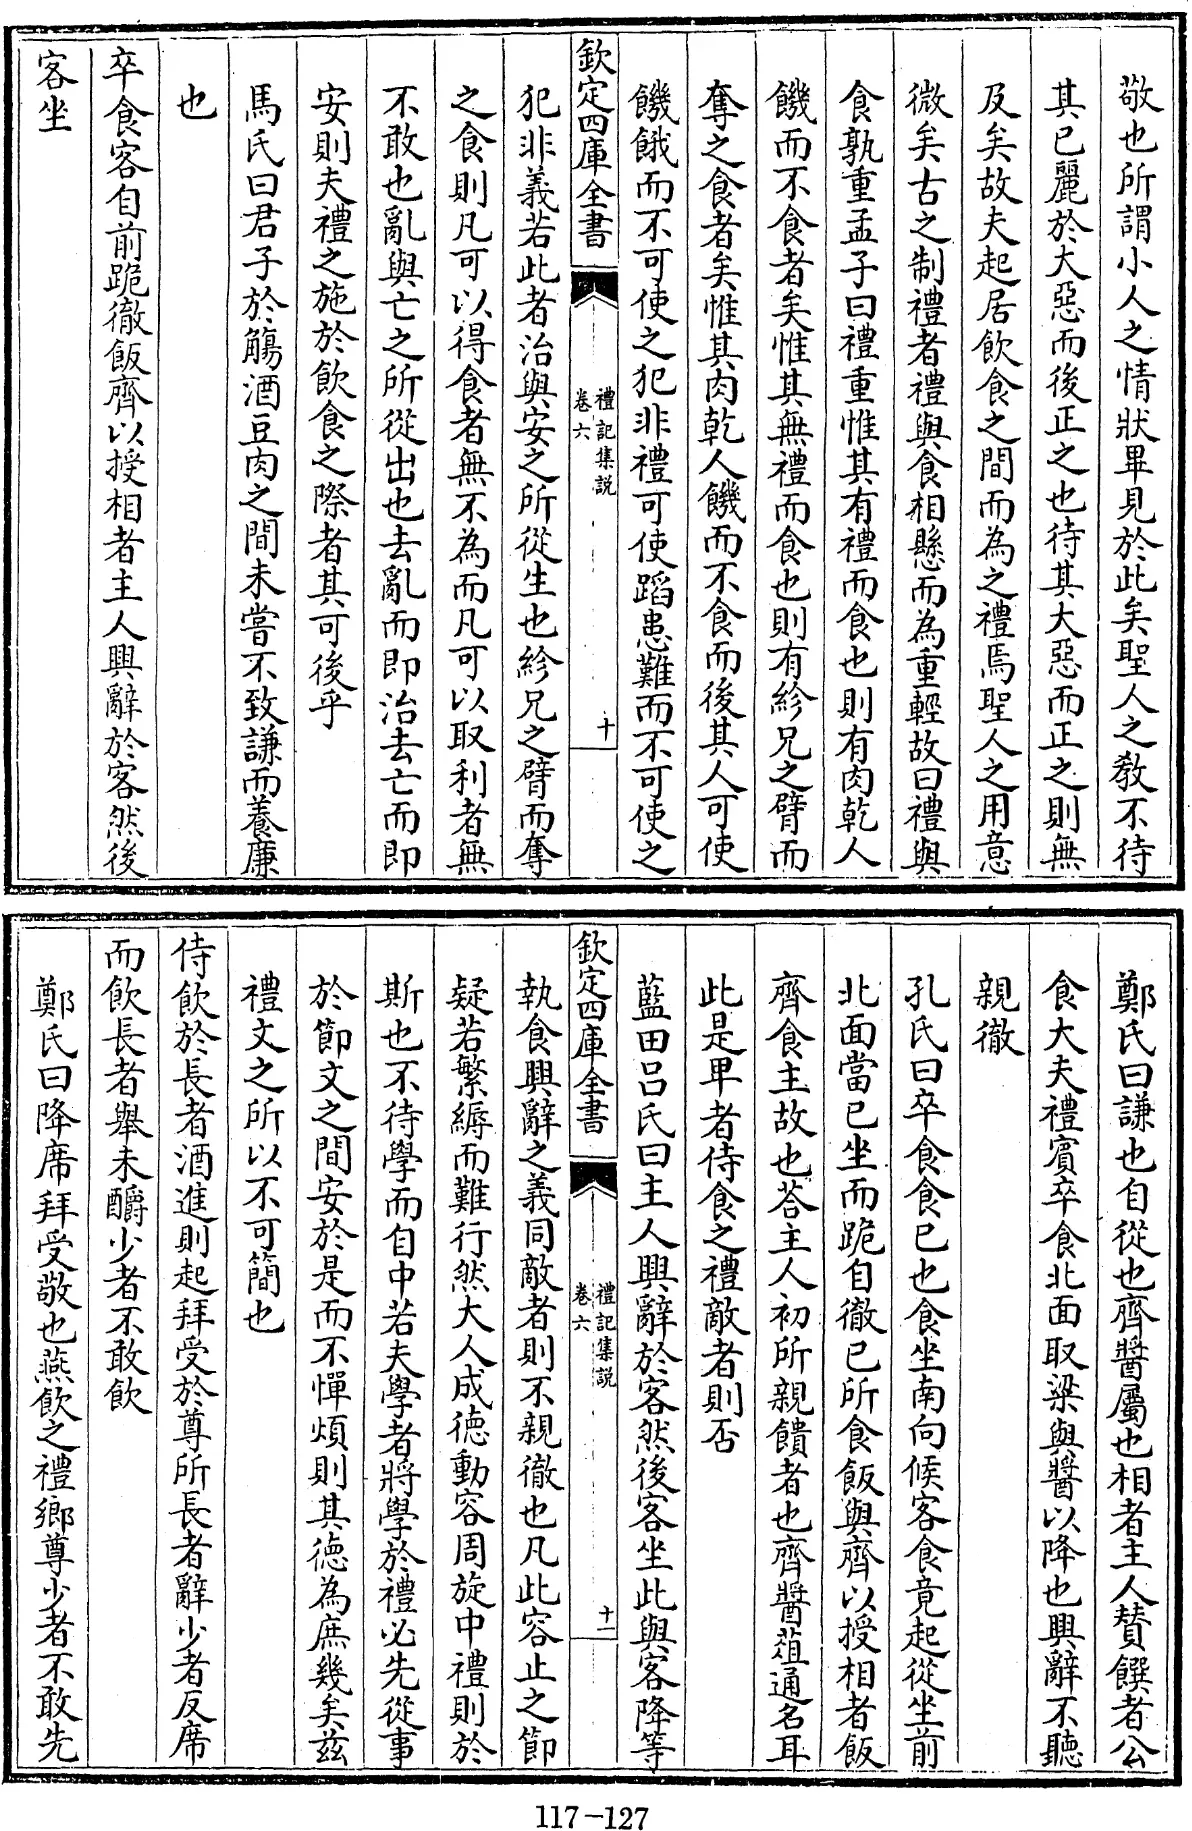 敬也所謂小人之情狀畢見於此矣聖人之教不待
其已麗於大惡而後正之也待其大惡而正之則無
及矣故夫起居飲食之間而為之禮焉聖人之用意
微矣古之制禮者禮與食相懸而為重輕故曰禮與
食孰重孟子曰禮重惟其有禮而食也則有肉乾人
饑而不食者矣惟其無禮而食也則有紾兄之臂而
奪之食者矣惟其肉乾人饑而不食而後其人可使
饑餓而不可使之犯非禮可使蹈患難而不可使之
欽定四庫全書
禮記集説
卷六
十
犯非義若此者治與安之所從生也紾兄之臂而奪
之食則凡可以得食者無不為而凡可以取利者無
不敢也亂與亡之所從出也去亂而即治去亡而即
安則夫禮之施於飲食之際者其可後乎
馬氏曰君子於觴酒豆肉之間未甞不致謙而養廉
也
卒食客自前跪徹飯齊以授相者主人興辭於客然後
客坐
鄭氏曰謙也自從也齊醬屬也相者主人賛饌者公
食大夫禮賓卒食北面取粱與醬以降也興辭不聽
親徹
孔氏曰卒食食已也食坐南向候客食竟起從坐前
北面當已坐而跪自徹已所食飯與齊以授相者飯
齊食主故也荅主人初所親饋者也齊醬葅通名耳
此是卑者侍食之禮敵者則否
藍田呂氏曰主人興辭於客然後客坐此與客降等
欽定四庫全書
禮記集説
卷六
十一
執食興辭之義同敵者則不親徹也凡此容止之節
疑若繁縟而難行然大人成徳動容周旋中禮則於
斯也不待學而自中若夫學者將學於禮必先從事
於節文之間安於是而不憚煩則其徳為庶幾矣兹
禮文之所以不可簡也
侍飲於長者酒進則起拜受於尊所長者辭少者反席
而飲長者舉未釂少者不敢飲
鄭氏曰降席拜受敬也燕飲之禮鄉尊少者不敢先
117-127